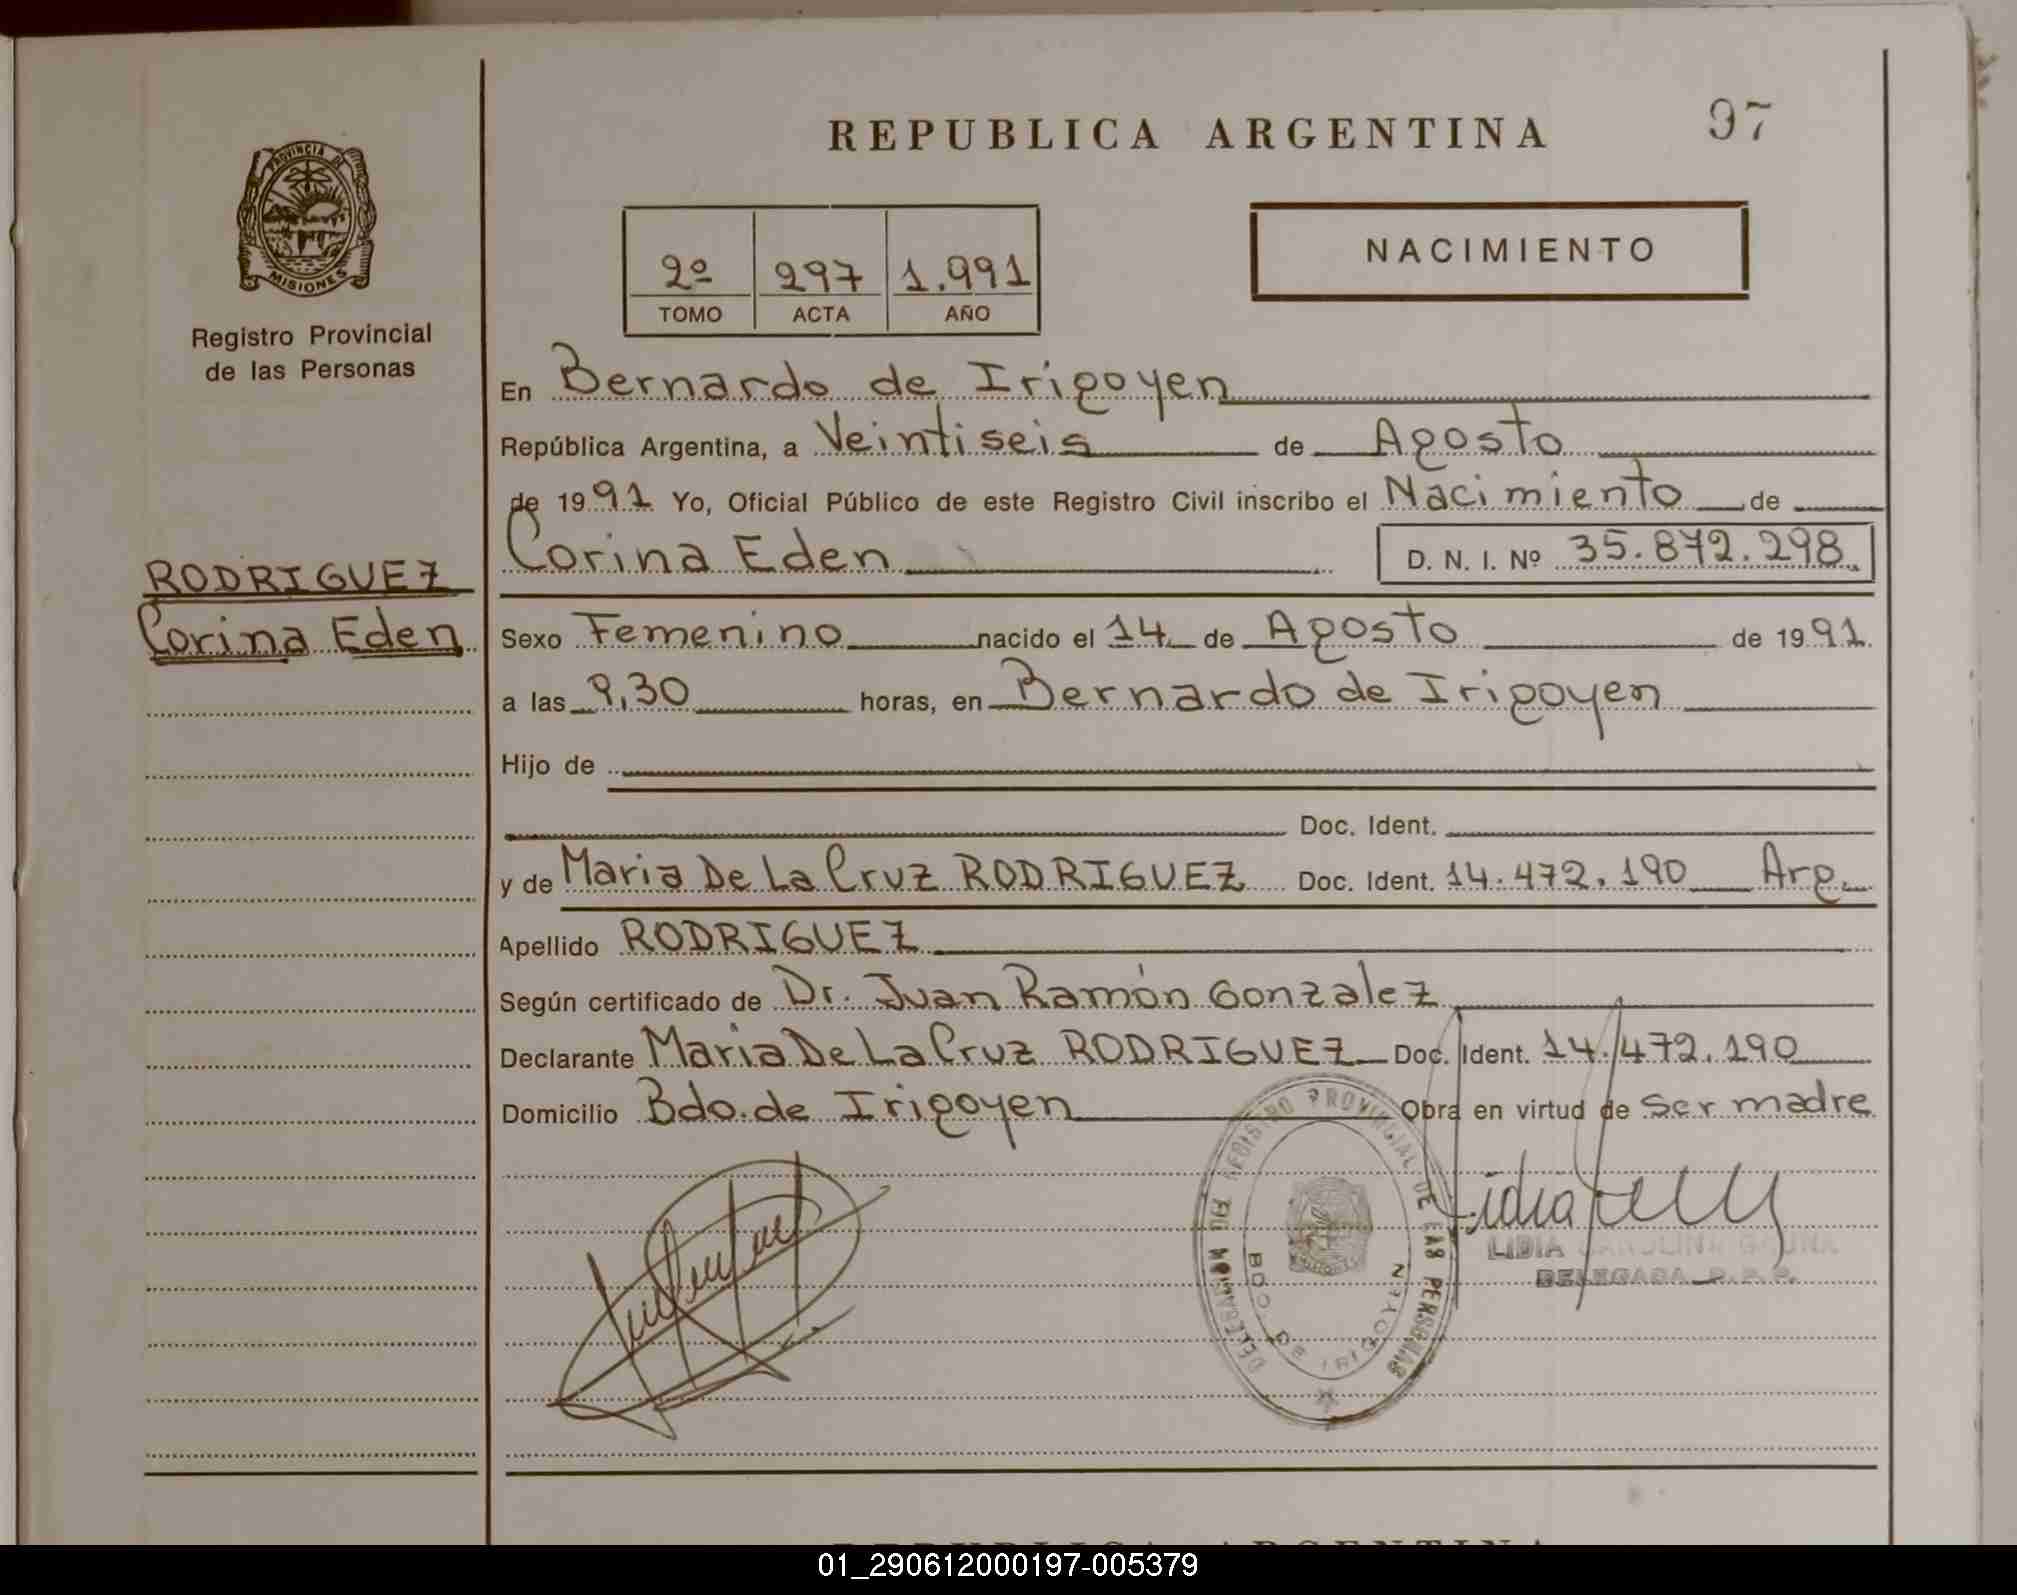 97
REPUBLICA ARGENTINA
PROVINCIA DE
MISIONES
Registro Provincial
de las Personas
2º 297 1.991
TOMO ACTA AÑO
NACIMIENTO
En Bernardo de Irigoyen
República Argentina, a Veintiseis de Agosto
de 1991 Yo, Oficial Público de este Registro Civil inscribo el Nacimiento de
Corina Eden D. N. I. Nº 35.872.298
RODRIGUEZ
Corina Eden
Sexo Femenino nacido el 14 de Agosto de 1991
a las 9,30 horas, en Bernardo de Irigoyen
Hijo de
Doc. Ident.
y de Maria De La Cruz RODRIGUEZ Doc. Ident. 14.472.190 Arg.
Apellido RODRIGUEZ
Según certificado de Dr. Juan Ramón Gonzalez
Declarante Maria De La Cruz RODRIGUEZ Doc. Ident. 14.472.190
Domicilio Bdo. de Irigoyen Obra en virtud de ser madre
REGISTRO PROVINCIAL DE LAS PERSONAS
BDO. DE IRIGOYEN
LIDIA CAROLINA
DELEGADA R.P.P.
REPUBLICA ARGENTINA
01_290612000197-005379